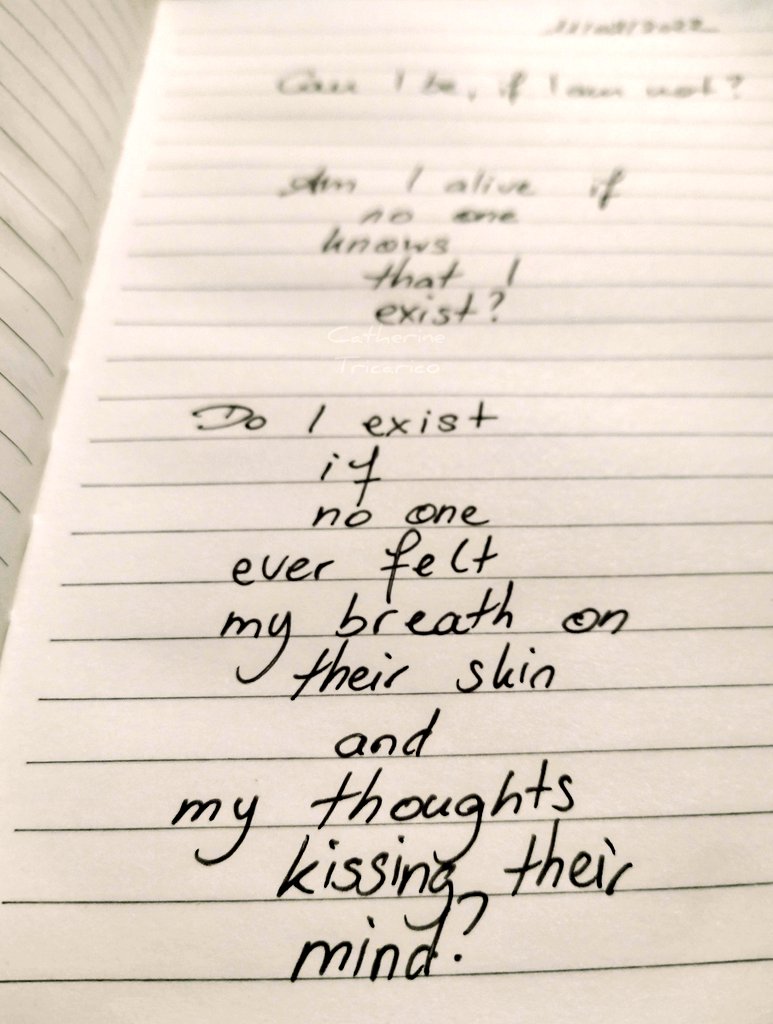 Can I be, if I am not?
Am I alive if
no one
knows
that I
exist?
Catherine
Tricarico
Do I exist
if
no one
ever felt
my breath on
their skin
and
my thoughts
kissing their
mind?